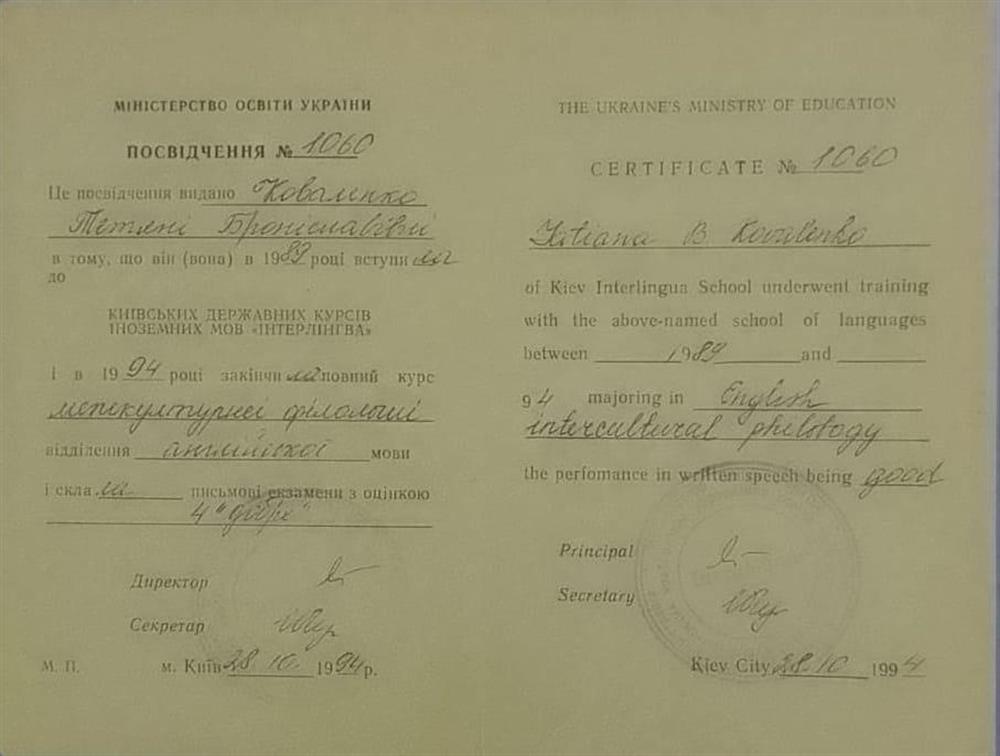 МІНІСТЕРСТВО ОСВІТИ УКРАЇНИ
ПОСВІДЧЕННЯ № 1060
Це посвідчення видано Коваленко
Тетяні Броніславівні
в тому, що він (вона) в 1989 році вступи ла
до
КИЇВСЬКИХ ДЕРЖАВНИХ КУРСІВ
ІНОЗЕМНИХ МОВ «ІНТЕРЛІНГВА»
і в 1994 році закінчи ла повний курс
міжкультурної філології
відділення англійської мови
і скла ла письмові екзамени з оцінкою
4 "добре"
Директор
Секретар
М. П. м. Київ 28.10. 1994 р.
THE UKRAINE'S MINISTRY OF EDUCATION
CERTIFICATE № 1060
Tatiana B Kovalenko
of Kiev Interlingua School underwent training
with the above-named school of languages
between 1989 and
94 majoring in English
intercultural philology
the perfomance in written speech being good
Principal
Secretary
Kiev City 28.10 1994